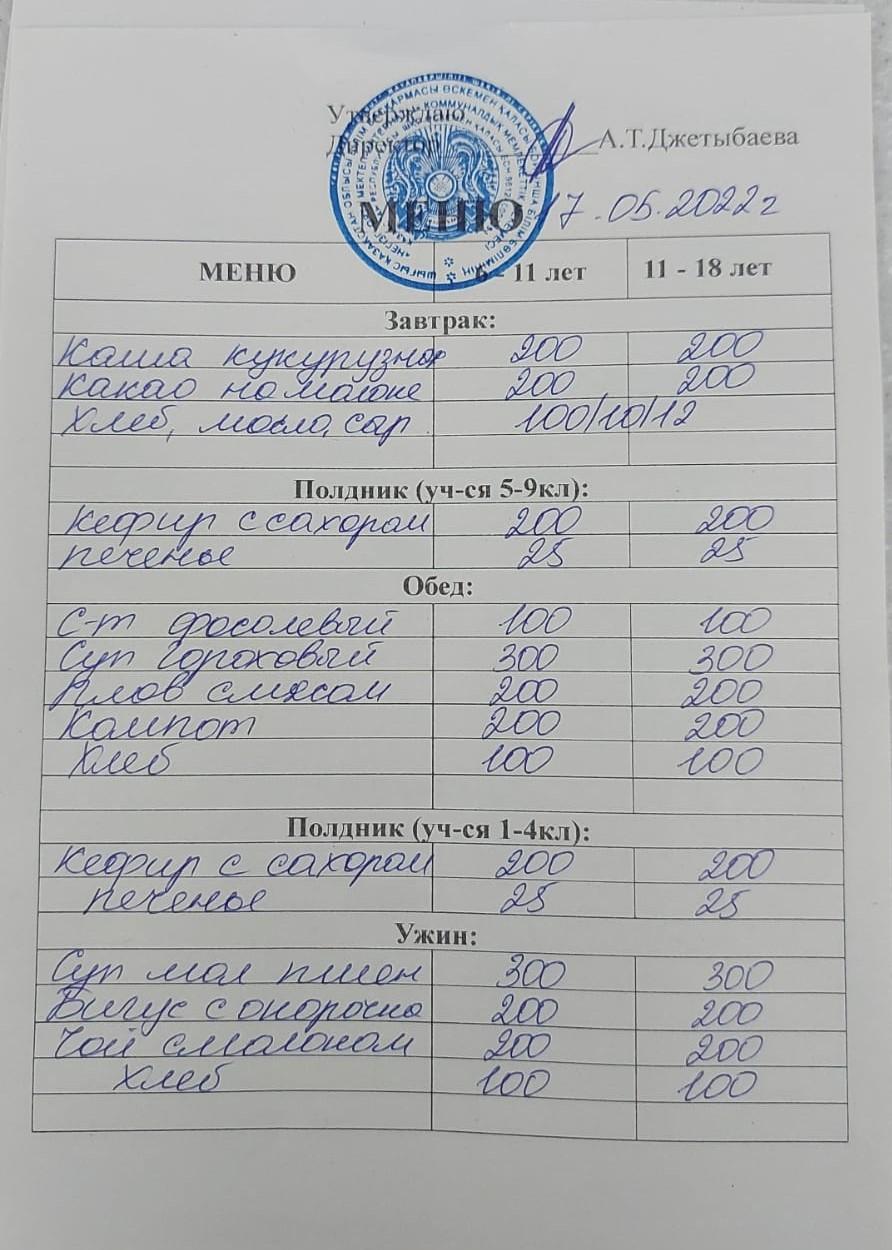 Утверждаю
Директор А.Т.Джетыбаева
МЕНЮ 17.05.2022 г
МЕНЮ 6 - 11 лет 11 - 18 лет
Завтрак:
Каша кукурузная 200 200
Какао на молоке 200 200
Хлеб, масло, сыр 100/10/12
Полдник (уч-ся 5-9кл):
Кефир с сахаром 200 200
печенье 25 25
Обед:
С-т фасолевый 100 100
Суп гороховый 300 300
Плов с мясом 200 200
Компот 200 200
Хлеб 100 100
Полдник (уч-ся 1-4кл):
Кефир с сахаром 200 200
печенье 25 25
Ужин:
Суп мол пшен 300 300
Бигус с окорочка 200 200
Чай с молоком 200 200
хлеб 100 100